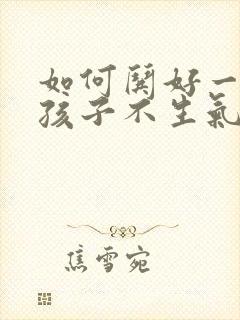 如何鬨好一
孩子不生氣
焦雪宛